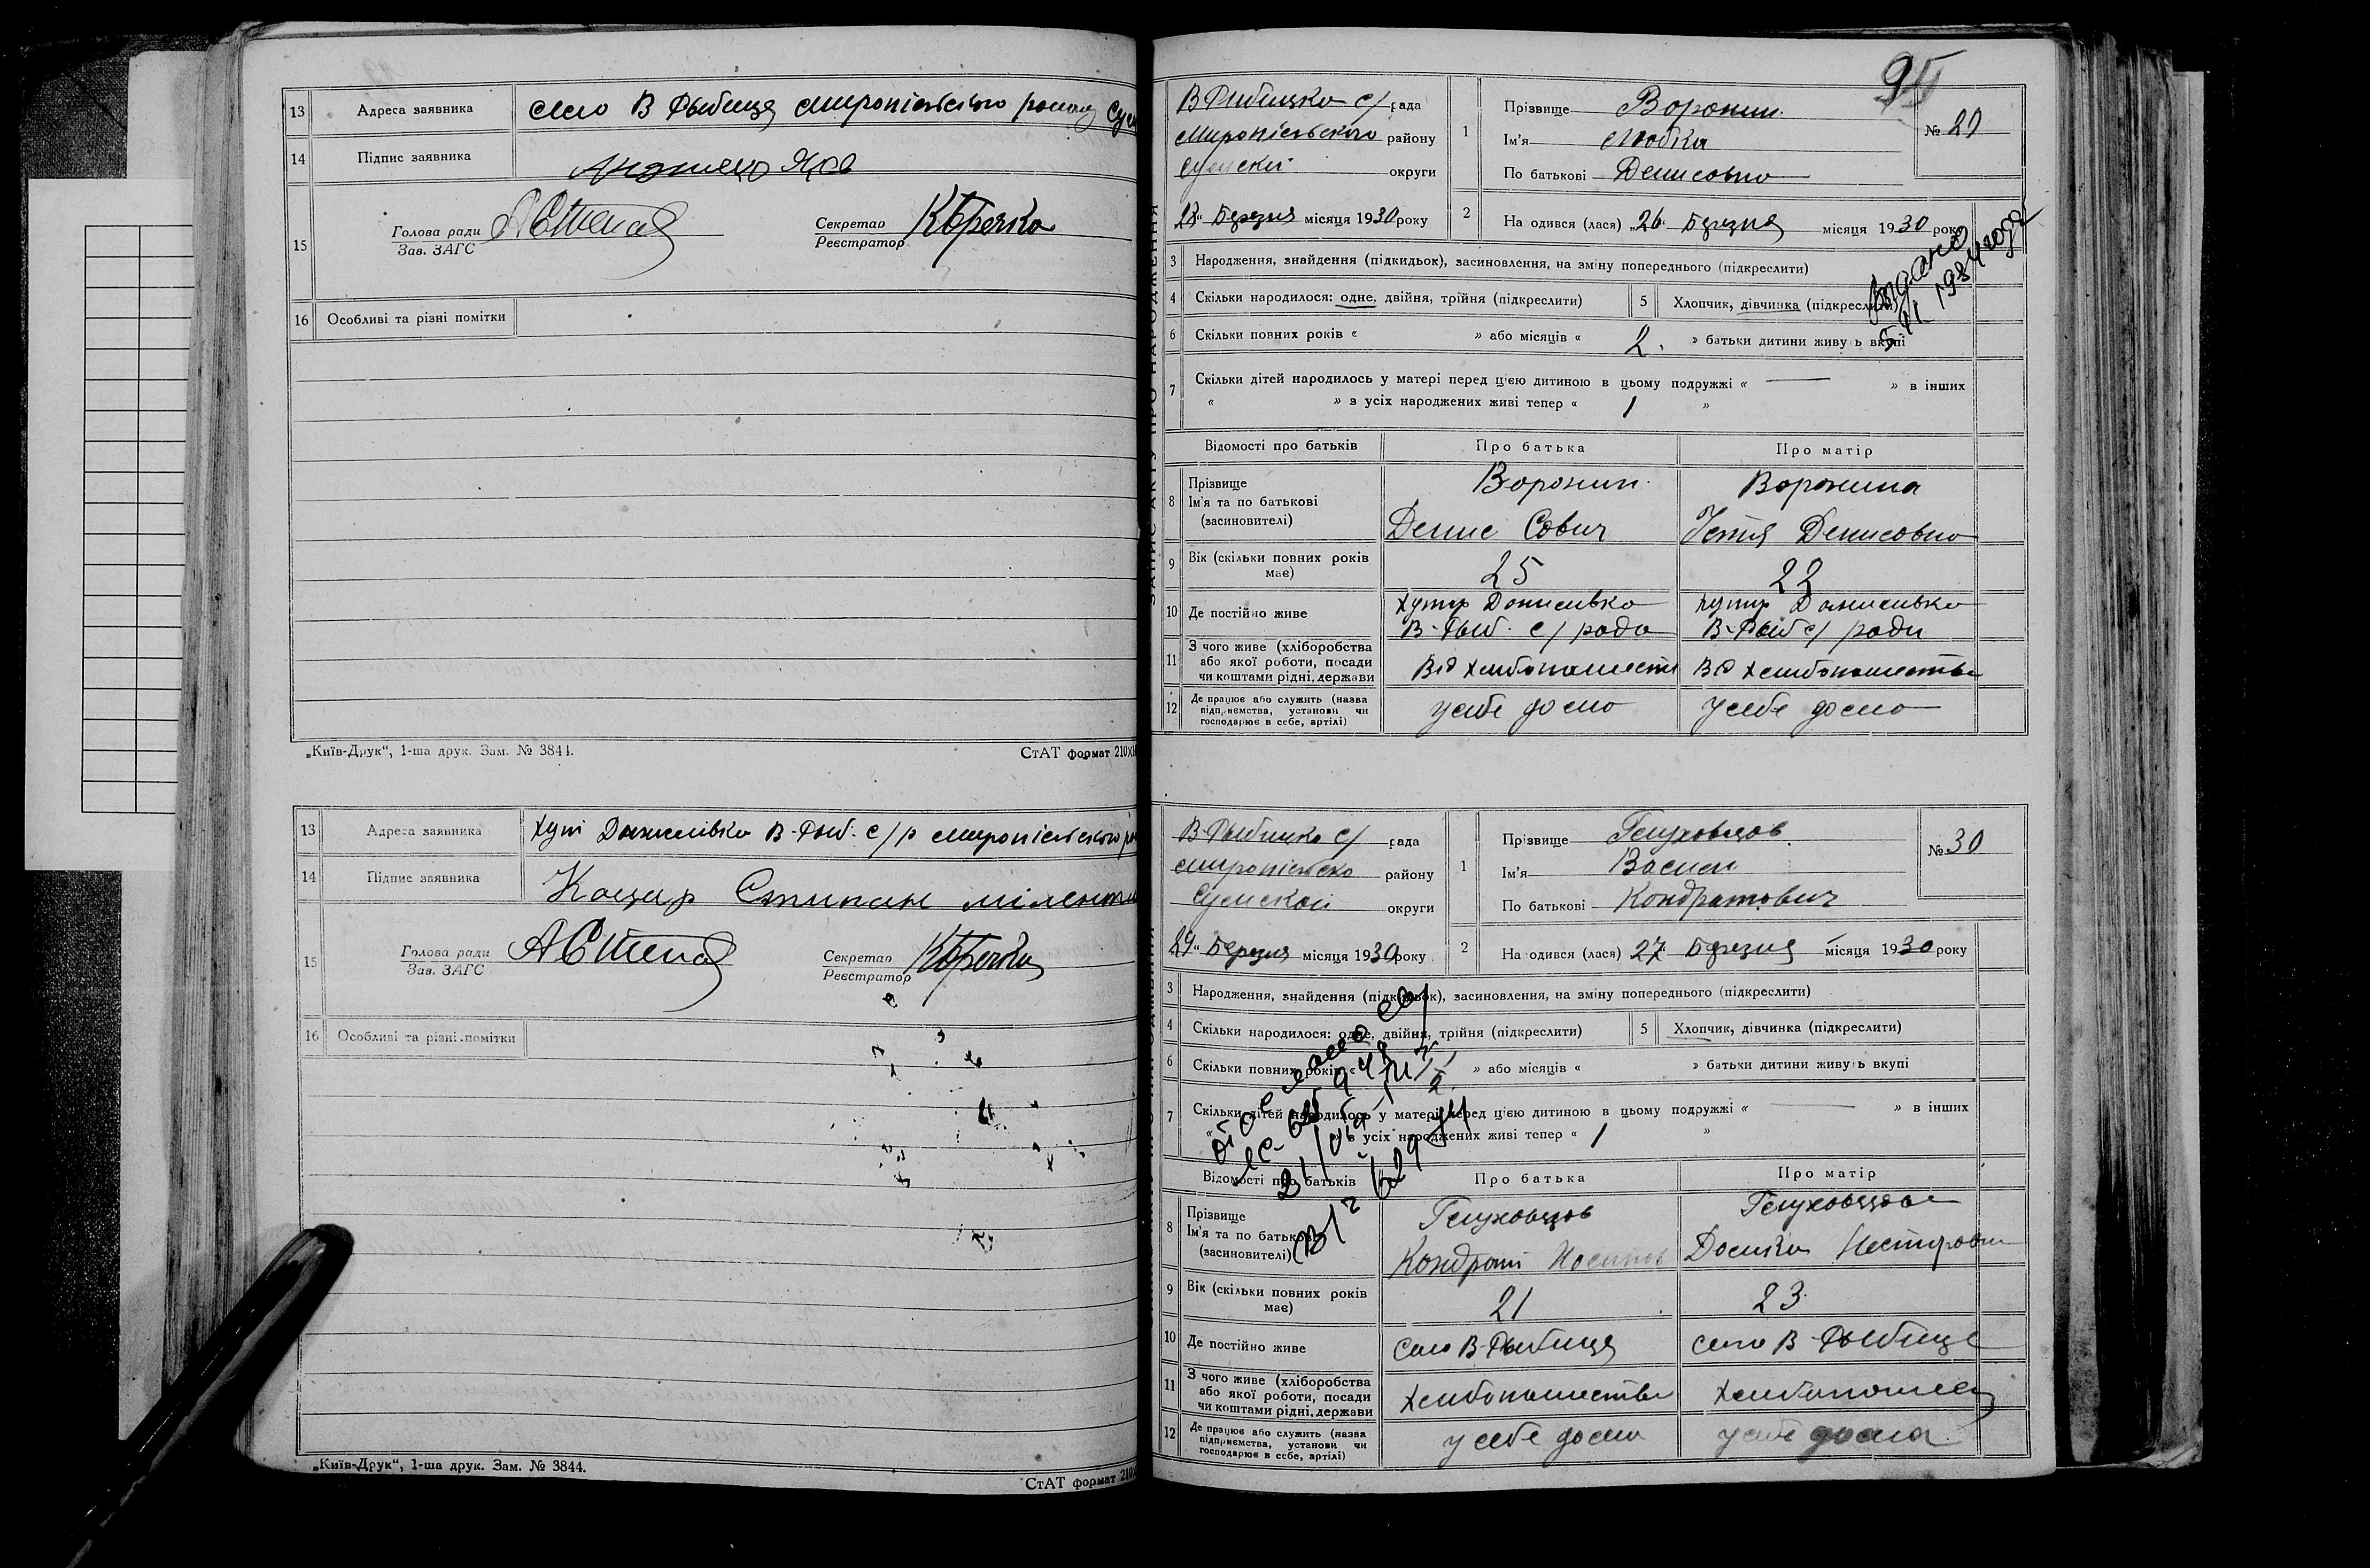 13 Адреса заявника село В Рыбиця Миропільського району Сум
14 Підпис заявника
15 Голова ради Секретар
Зав. ЗАГС Реєстратор
16 Особливі та різні помітки
„Київ-Друк“, 1-ша друк. Зам. № 3844. СтАТ формат 210х
13 Адреса заявника хут Данилівка В-Рыб. с/р Миропільського
14 Підпис заявника Коцар Стипан
15 Голова ради Секретар
Зав. ЗАГС Реєстратор
16 Особливі та різні помітки
„Київ-Друк“, 1-ша друк. Зам. № 3844.
СтАТ формат 210
95
ЗАПИС АКТУ ПРО НАРОДЖЕННЯ
В Рибицка с/ рада
Миропільського району
округи
1 Прізвище Воронин
Ім'я Любка
По батькові Денисовна
№ 29
28 Березня місяця 1930 року
2 На одився (лася) „26 Березня місяця 1930 року
Выдано
1984 года
3 Народження, знайдення (підкидьок), засиновлення, на зміну попереднього (підкреслити)
4 Скільки народилося: одне, двійня, трійня (підкреслити) 5 Хлопчик, дівчинка (підкреслити)
6 Скільки повних років « » або місяців « 2. » батьки дитини живуть вкупі
7 Скільки дітей народилось у матері перед цією дитиною в цьому подружжі « — » в інших
« » з усіх народжених живі тепер « 1 »
Відомості про батьків Про батька Про матір
8 Прізвище Воронин Воронина
Ім'я та по батькові
(засиновителі) Денис Сович Устя Денисовна
9 Вік (скільки повних років має) 25 22
10 Де постійно живе хутір Данилівка хутір Данилівка
В-Рыб. с/ рада В-Рыб с/ ради
11 З чого живе (хліборобства
або якої роботи, посади
чи коштами рідні, держави Від хлибопашеств Від хлибопашества
12 Де працює або служить (назва
підприємства, установи чи
господарює в себе, артілі) у себе дома у себе дома
В-Рыбицка с/ рада
Миропільска району
Сумской округи
1 Прізвище Глуховцов
Ім'я Васил
По батькові Кондратович
№ 30
29 Березня місяця 1930 року
2 На одився (лася) 27 Березня місяця 1930 року
3 Народження, знайдення (підкидьок), засиновлення, на зміну попереднього (підкреслити)
4 Скільки народилося: одне, двійня, трійня (підкреслити) 5 Хлопчик, дівчинка (підкреслити)
6 Скільки повних років « » або місяців « » батьки дитини живуть вкупі
7 Скільки дітей народилось у матері перед цією дитиною в цьому подружжі « — » в інших
« » з усіх народжених живі тепер « 1 »
Відомості про батьків Про батька Про матір
8 Прізвище Глуховцов Глуховцова
Ім'я та по батькові
(засиновителі) Кондрат Доська Нестировна
9 Вік (скільки повних років має) 21 23
10 Де постійно живе село В-Рыбиця село В-Рыбиця
11 З чого живе (хліборобства
або якої роботи, посади
чи коштами рідні, держави хлибопашества хлибопашес
12 Де працює або служить (назва
підприємства, установи чи
господарює в себе, артілі) у себе дома у себе дома